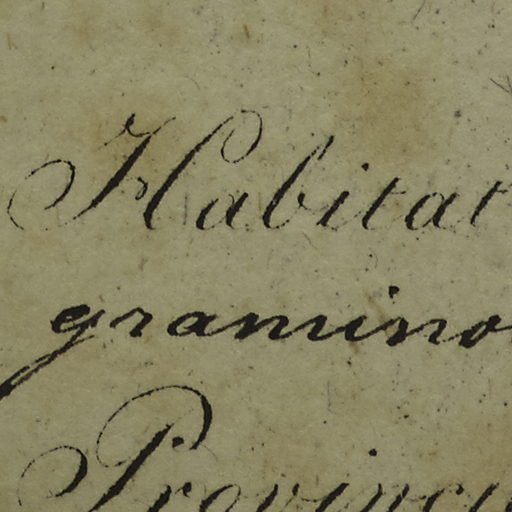 Habitat
gramino
Provinci